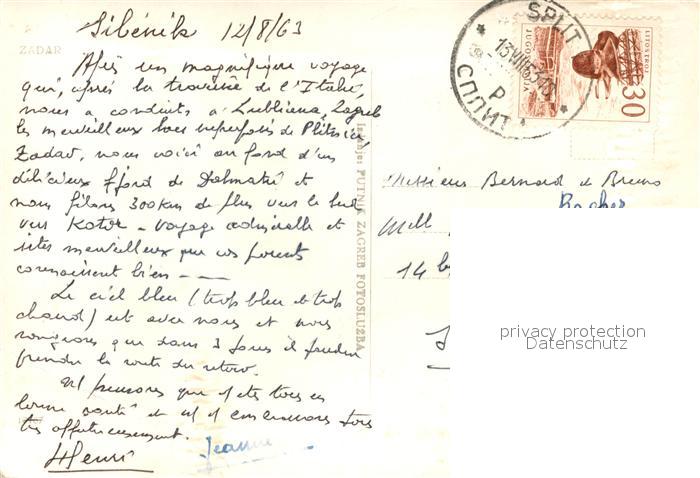 Sibénik 12/8/63
ZADAR
Après un magnifique voyage
qui, après la traversée de l'Italie,
nous a conduits à Lubliana, Zagreb
les merveilleux lacs superposés de Plitvicé
Zadar, nous voici au fond d'un
délicieux fjord de Dalmatie et
nous filons 300 km de plus vers le Sud
vers Kotor - voyage admirable et
sites merveilleux que vos parents
connaissent bien -
Le ciel bleu (trop bleu et trop
chaud) est avec nous et nous
songeons que dans 3 jours il faudra
prendre la route du retour.
et pensons que êtes tous en
bonne santé et embrassons tous
très affectueusement.
Henri
Jeanne
Izdanje: PUTNIK ZAGREB FOTOSLUŽBA
SPLIT
СПЛИТ
P
JUGOSLAVIJA
LITOSTROJ
30
Messieurs Bernard et Bruno
Rocher
14 b
privacy protection
Datenschutz